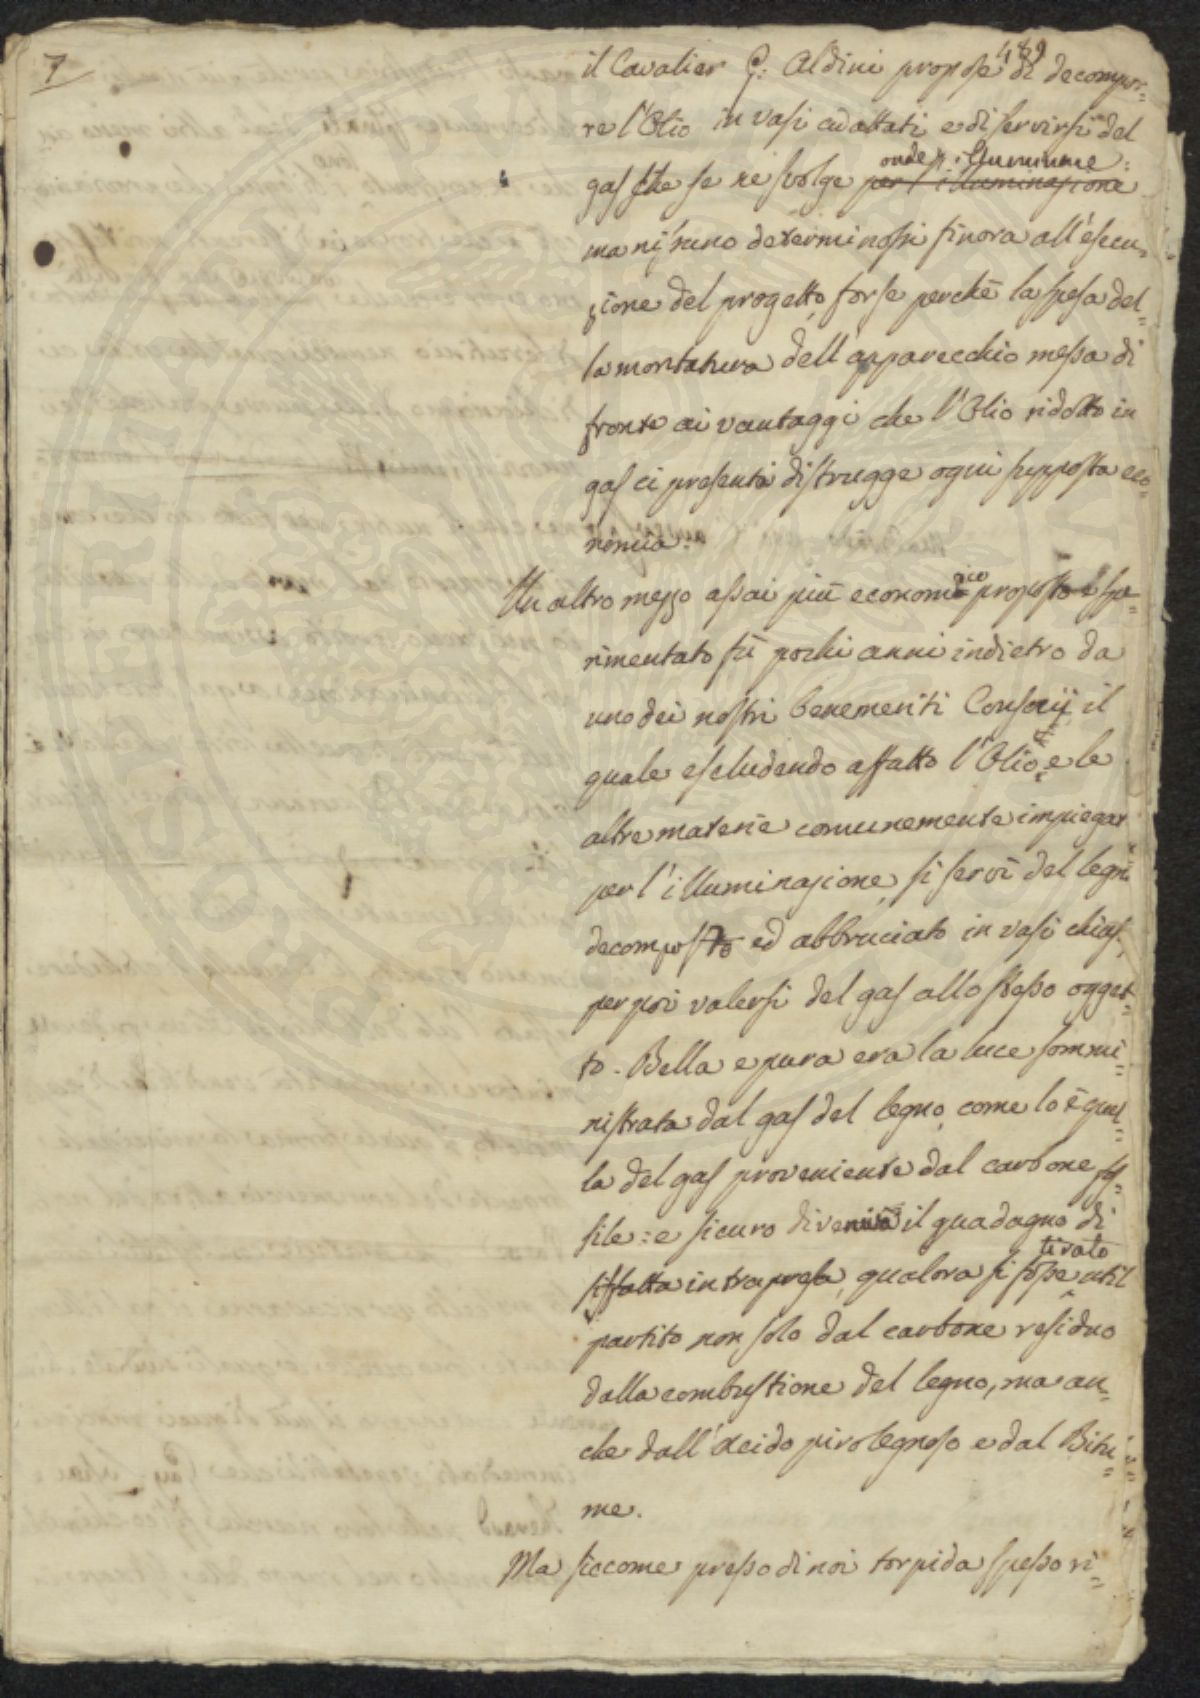 7
489
il Cavalier G: Aldini propose di decompor=
re l'Olio in vasi adattati e di servirsi del
onde s'illuminare:
gas che se ne svolge per l'illuminazione
ma niuno determinossi finora all'esecu=
zione del progetto, forse perchè la spesa del=
la montatura dell'apparecchio messa di
fronte ai vantaggi che l'Olio ridotto in
gas ci presenta distrugge ogni supposta eco=
nomia.
Un altro mezzo assai più economico proposto e spe=
rimentato fù pochi anni indietro da
uno dei nostri benemeriti Consocij, il
quale escludendo affatto l'Olio, e le
altre materie comunemente impiegat
per l'illuminazione, si servì del legn
decomposto ed abbruciato in vasi chius,
per poi valersi del gas allo stesso ogget=
to. Bella e pura era la luce sommi=
nistrata dal gas del legno, come lo è quel=
la del gas proveniente dal carbone fos=
sile: e sicuro diveniva il guadagno di
tirato
siffatta intrapresa, qualora si fosse util
partito non solo dal carbone residuo
dalla combustione del legno, ma an=
che dall'acido pirolegnoso e dal Bitu=
me.
Ma siccome presso di noi torpida spesso ri=